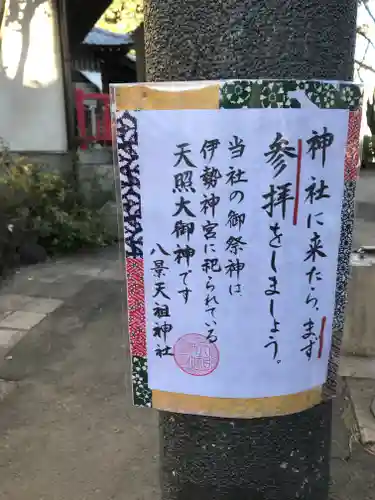 神社に来たら、まず
参拝をしましょう。
当社の御祭神は、
伊勢神宮に祀られている
天照大御神です
八景天祖神社